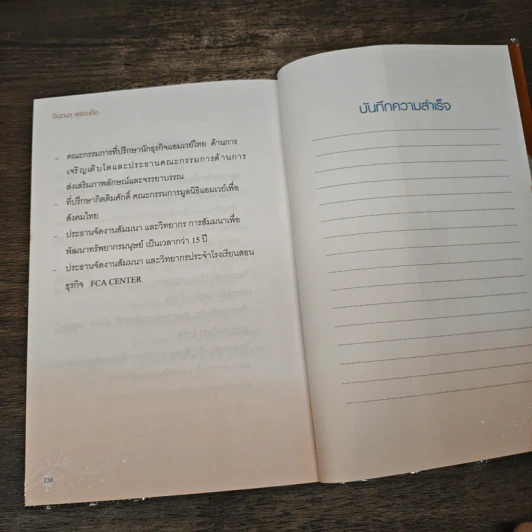 จินตนา พุฒเอ็ด
- คณะกรรมการที่ปรึกษานักธุรกิจแอมเวย์ไทย ด้านการ
เจริญเติบโตและประธานคณะกรรมการด้านการ
ส่งเสริมภาพลักษณ์และจรรยาบรรณ
- ที่ปรึกษากิตติมศักดิ์ คณะกรรมการมูลนิธิแอมเวย์เพื่อ
สังคมไทย
- ประธานจัดงานสัมมนา และวิทยากร การสัมมนาเพื่อ
พัฒนาทรัพยากรมนุษย์ เป็นเวลากว่า 15 ปี
- ประธานจัดงานสัมมนา และวิทยากรประจำโรงเรียนสอน
ธุรกิจ FCA CENTER
238
บันทึกความสำเร็จ